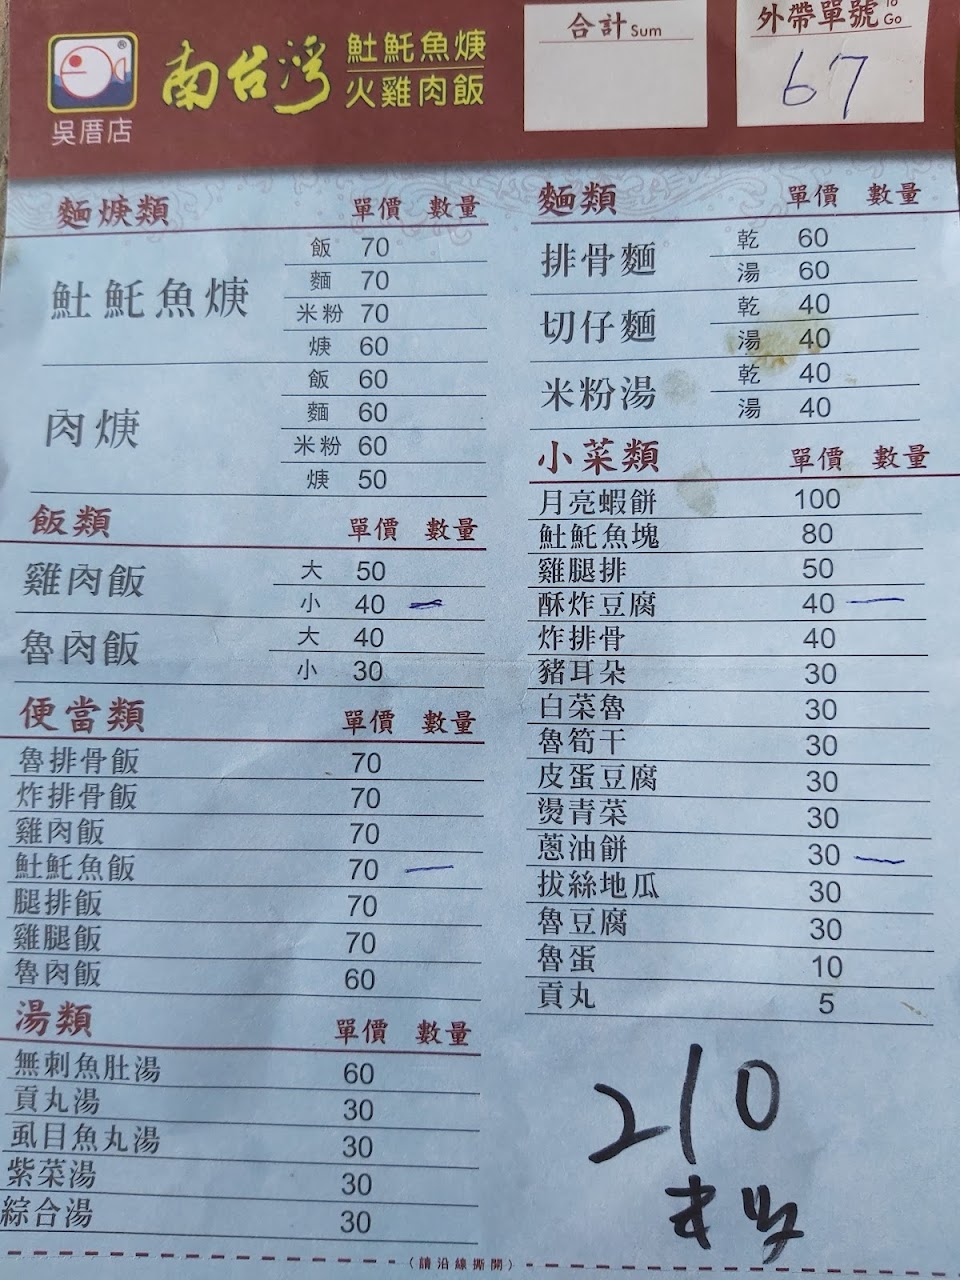 合計 Sum
外帶單號 To Go
67
®
吳厝店
南台灣
𩵚魠魚焿
火雞肉飯
麵焿類 單價 數量
𩵚魠魚焿
飯 70
麵 70
米粉 70
焿 60
肉焿
飯 60
麵 60
米粉 60
焿 50
飯類 單價 數量
雞肉飯
大 50
小 40 一
魯肉飯
大 40
小 30
便當類 單價 數量
魯排骨飯 70
炸排骨飯 70
雞肉飯 70
𩵚魠魚飯 70 一
腿排飯 70
雞腿飯 70
魯肉飯 60
湯類 單價 數量
無刺魚肚湯 60
貢丸湯 30
虱目魚丸湯 30
紫菜湯 30
綜合湯 30
麵類 單價 數量
排骨麵
乾 60
湯 60
切仔麵
乾 40
湯 40
米粉湯
乾 40
湯 40
小菜類 單價 數量
月亮蝦餅 100
𩵚魠魚塊 80
雞腿排 50
酥炸豆腐 40 一
炸排骨 40
豬耳朵 30
白菜魯 30
魯筍干 30
皮蛋豆腐 30
燙青菜 30
蔥油餅 30 一
拔絲地瓜 30
魯豆腐 30
魯蛋 10
貢丸 5
210
(請沿線撕開)